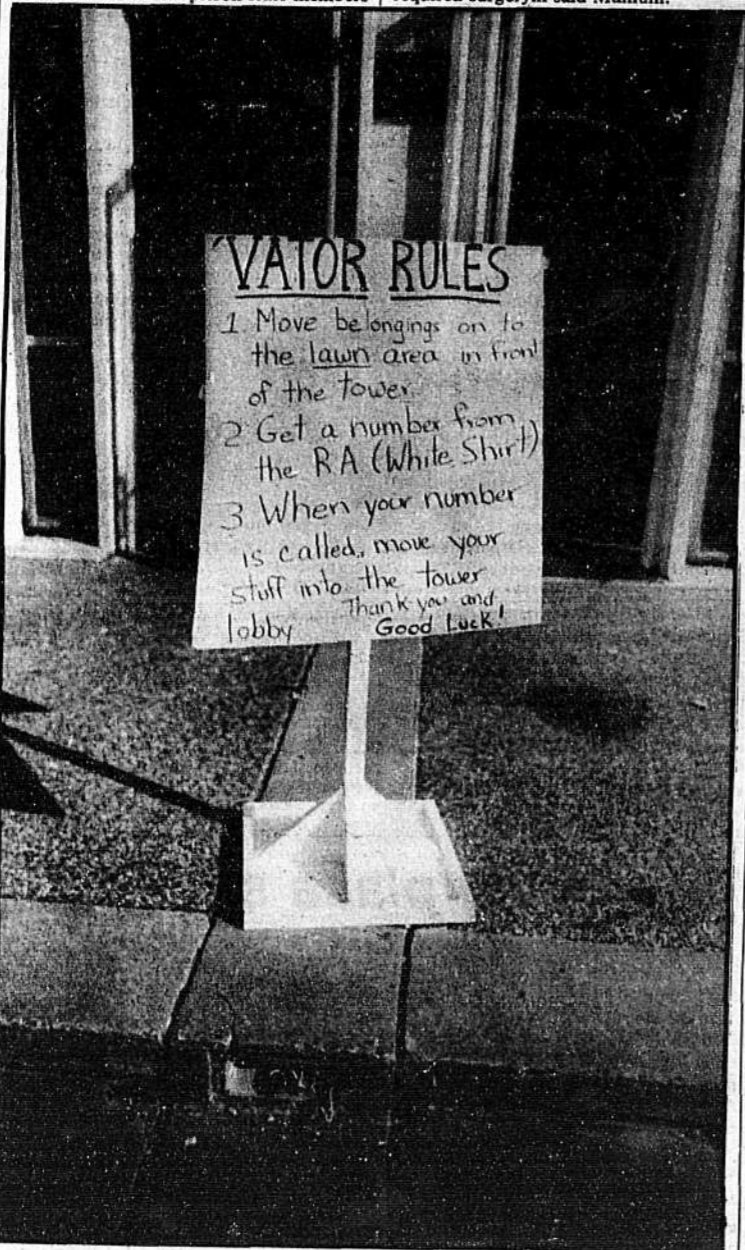 required surgery, said
'VATOR RULES
1 Move belongings on to
the lawn area in front
of the tower.
2 Get a number from
the RA (White Shirt)
3 When your number
is called, move your
stuff into the tower
lobby Thank you and
Good Luck!